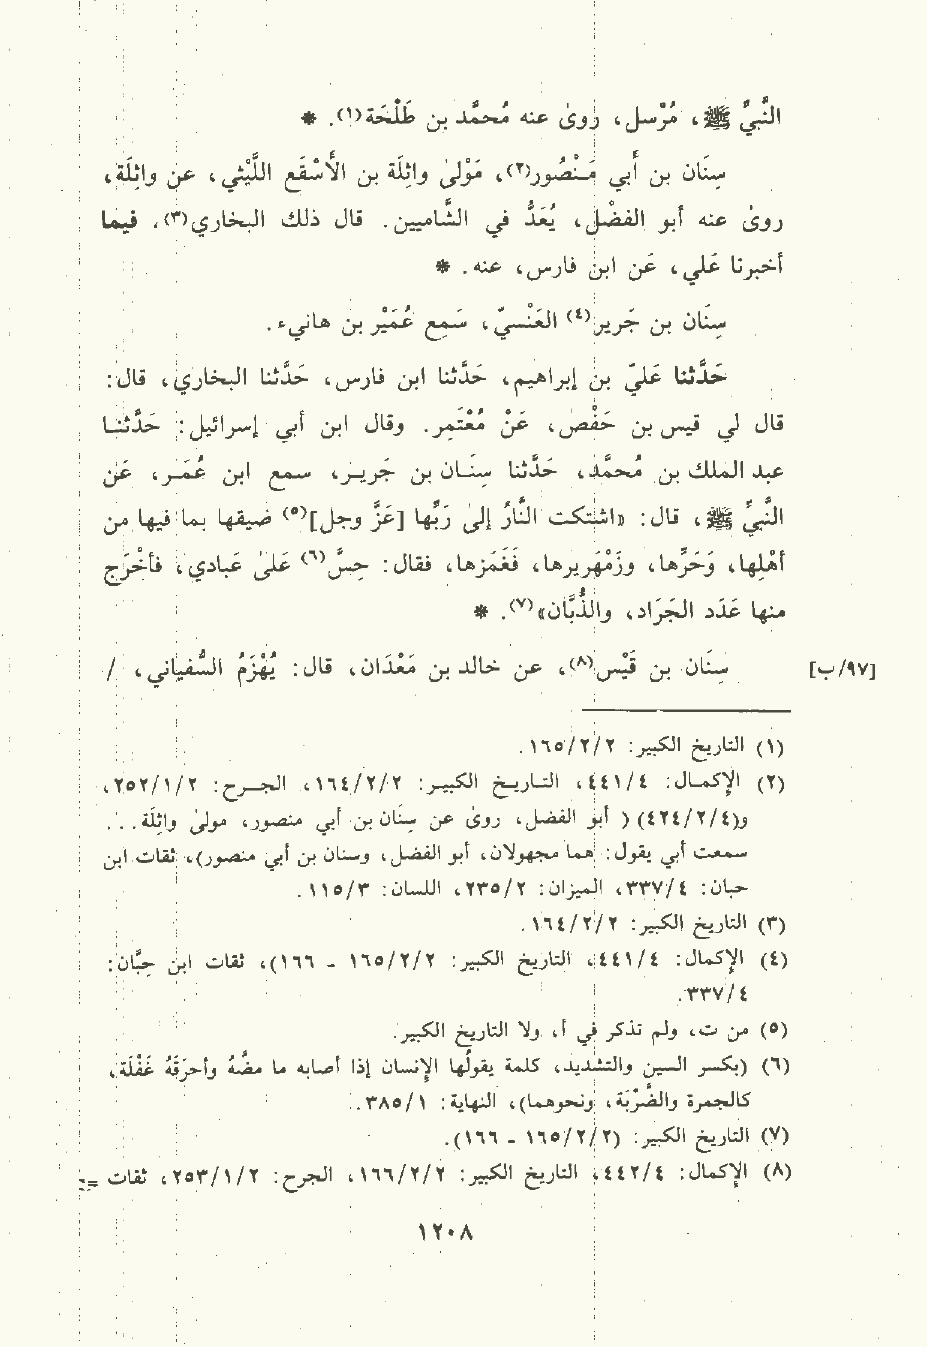 النَّبيِّ ﷺ، مُرْسل، روىٰ عنه مُحمَّد بن طَلْحَة(١). *
سِنَان بن أبي مَـنْصُور(٢)، مَوْلىٰ واثِلَة بن الأَسْقَع اللَّيْثي، عن واثِلَة،
روىٰ عنه أبو الفضْل، يُعَدُّ في الشَّاميين. قال ذلك البخاري(٣)، فيما
أخبرنا عَلي، عَن ابن فارس، عنه. *
سِنَان بن جَرير(٤) العَنْسيّ، سَمِع عُمَيْر بن هانيء.
حَدَّثنا عَليّ بن إبراهيم، حَدَّثنا ابن فارس، حَدَّثنا البخاري، قال:
قال لي قيس بن حَفْص، عَنْ مُعْتَمِر. وقال ابن أبي إسرائيل: حَدَّثنـا
عبد الملك بن مُحمَّد، حَدَّثنا سِنَـان بن جَريـر، سمع ابن عُمَـر، عَن
النَّبيِّ ﷺ، قال: «اشتكت النَّارُ إلىٰ رَبِّها [عَزَّ وجل](٥) ضيقها بما فيها من
أهْلِها، وَحَرِّها، وزَمْهَريرها، فَغَمَزها، فقال: حِسَّ(٦) عَلىٰ عَبادي، فأخْرَج
منها عَدَد الجَراد، والذُّبَّان»(٧). *
سِنَان بن قَيْس(٨)، عن خالد بن مَعْدَان، قال: يُهْزَمُ السُّفياني، / [٩٧/ب]
(١) التاريخ الكبير: ١٦٥/٢/٢.
(٢) الإكمـال: ٤٤١/٤، التـاريـخ الكبيـر: ١٦٤/٢/٢، الجـرح: ٢٥٢/١/٢،
و(٤٢٤/٢/٤) ( أبو الفضل، روىٰ عن سِنَان بن أبي منصور، مولىٰ واثِلَة...
سمعت أبي يقول: هما مجهولان، أبو الفضل، وسنان بن أبي منصور)، ثقات ابن
حبان: ٣٣٧/٤، الميزان: ٢٣٥/٢، اللسان: ١١٥/٣.
(٣) التاريخ الكبير: ١٦٤/٢/٢.
(٤) الإكمال: ٤٤١/٤، التاريخ الكبير: ١٦٥/٢/٢ - ١٦٦)، ثقات ابن حِبَّان:
٣٣٧/٤.
(٥) من ت، ولم تذكر في أ، ولا التاريخ الكبير.
(٦) (بكسر السين والتشديد، كلمة يقولُها الإنسان إذا أصابه ما مضُّهُ وأحرَقَهُ غَفْلَة،
كالجمرة والضَّرْبَة، ونحوهما)، النهاية: ٣٨٥/١.
(٧) التاريخ الكبير: (١٦٥/٢/٢ - ١٦٦).
(٨) الإكمال: ٤٤٢/٤، التاريخ الكبير: ١٦٦/٢/٢، الجرح: ٢٥٣/١/٢، ثقات =
١٢٠٨